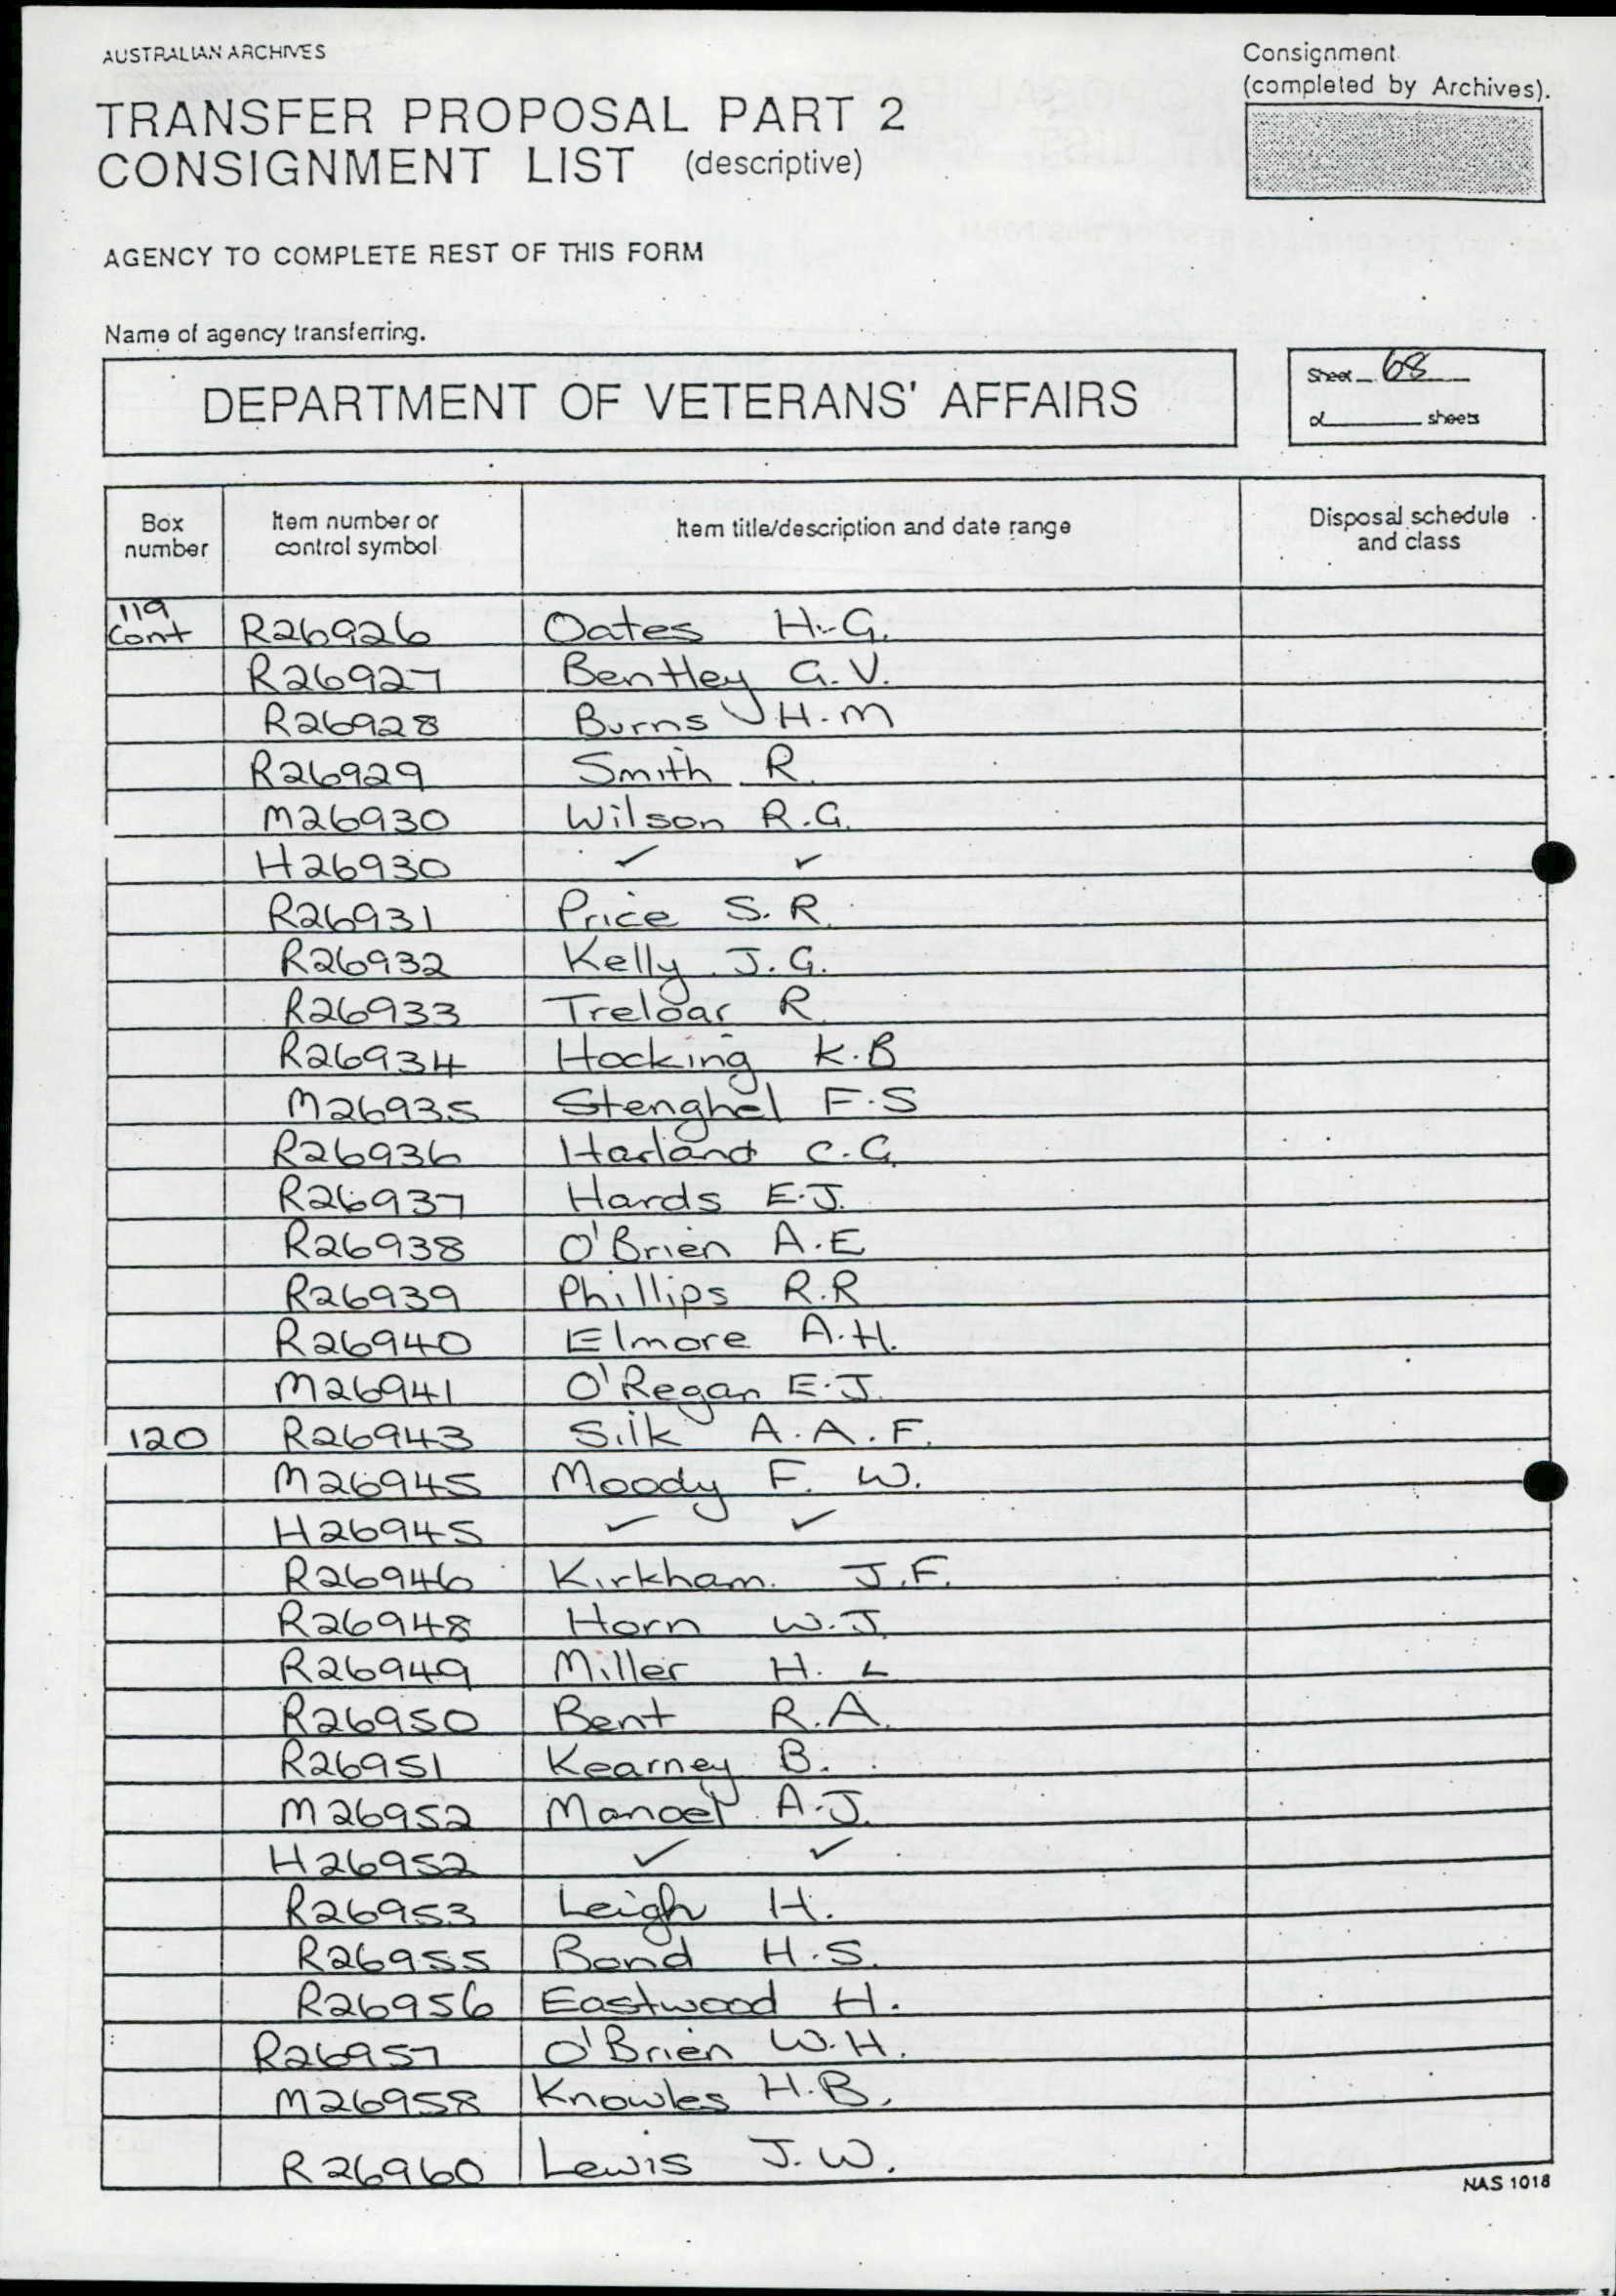 AUSTRALIAN ARCHIVES
Consignment
(completed by Archives).
TRANSFER PROPOSAL PART 2
CONSIGNMENT LIST (descriptive)
AGENCY TO COMPLETE REST OF THIS FORM
Name of agency transferring.
DEPARTMENT OF VETERANS' AFFAIRS
Sheet 68
of sheets
Box number
Item number or control symbol
Item title/description and date range
Disposal schedule and class
119 Cont R26926 Oates H.G.
R26927 Bentley G.V.
R26928 Burns H.M
R26929 Smith R.
M26930 Wilson R.G.
H26930 ✓ ✓
R26931 Price S.R.
R26932 Kelly J.G.
R26933 Treloar R.
R26934 Hocking K.B
M26935 Stenghel F.S
R26936 Harland C.G.
R26937 Hards E.J.
R26938 O'Brien A.E
R26939 Phillips R.R
R26940 Elmore A.H.
M26941 O'Regan E.J.
120 R26943 Silk A.A.F.
M26945 Moody F. W.
H26945 ✓ ✓
R26946 Kirkham. J.F.
R26948 Horn W.J.
R26949 Miller H. L
R26950 Bent R.A.
R26951 Kearney B.
M26952 Manoel A.J.
H26952 ✓ ✓
R26953 Leigh H.
R26955 Bond H.S.
R26956 Eastwood H.
R26957 O'Brien W.H.
M26958 Knowles H.B.
R26960 Lewis J.W.
NAS 1018